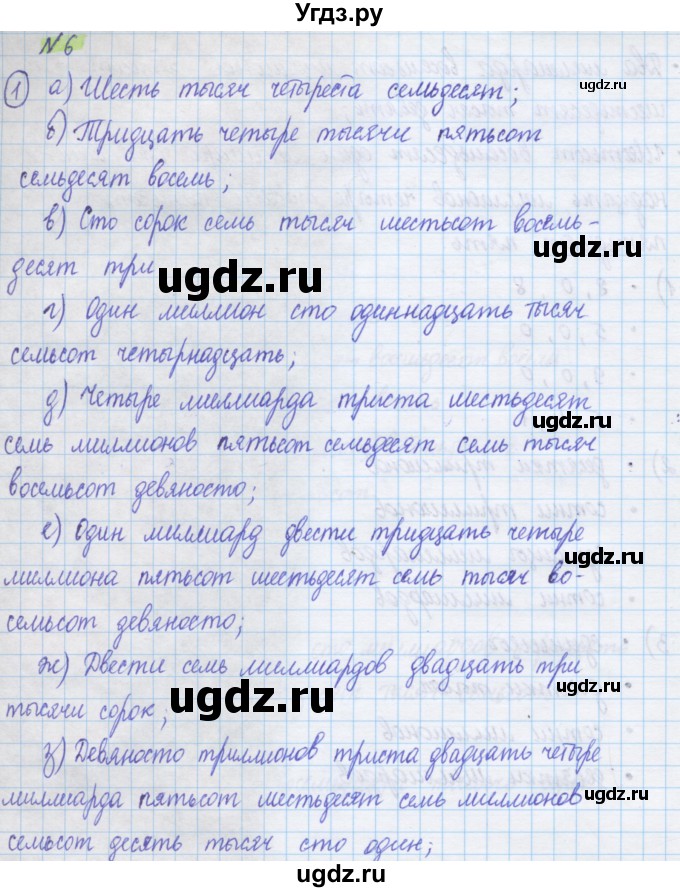 Угдз.ру
№6
ugdz.ru
1) а) Шесть тысяч четыреста семьдесят;
б) Тридцать четыре тысячи пятьсот
ugdz.ru
семьдесят восемь;
в) Сто сорок семь тысяч шестьсот восемь-
ugdz.ru
десят три
ugdz.ru
г) Один миллион сто одиннадцать тысяч
семьсот четырнадцать;
д) Четыре миллиарда триста шестьдесят
ugdz.ru
семь миллионов пятьсот семьдесят семь тысяч
восемьсот девяносто;
е) Один миллиард двести тридцать четыре
ugdz.ru
миллиона пятьсот шестьдесят семь тысяч во-
семьсот девяносто;
ж) Двести семь миллиардов двадцать три
ugdz.ru
ugdz.ru
тысячи сорок;
з) Девяносто триллионов триста двадцать четыре
миллиарда пятьсот шестьдесят семь миллионов
ugdz.ru
семьсот десять тысяч сто один;